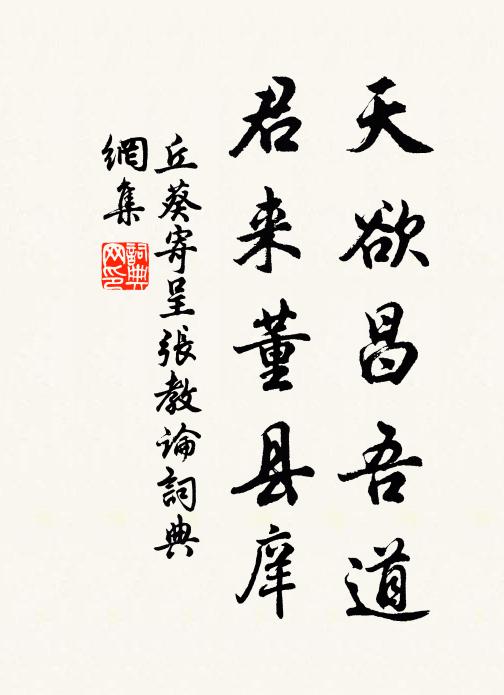 天欲昌吾道
君来董县庠
丘葵寄呈張教論詞典
網集
詞典網印